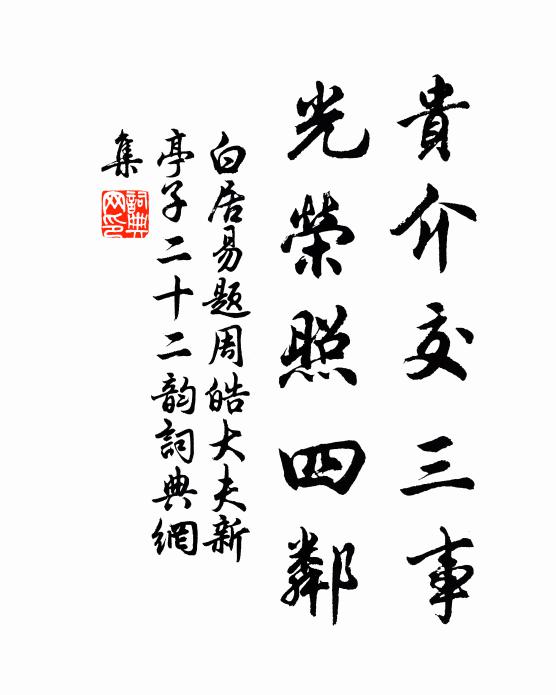 貴介交三事
光榮照四鄰
白居易題周皓大夫新
亭子二十二韵詞典網
集
詞典
网印